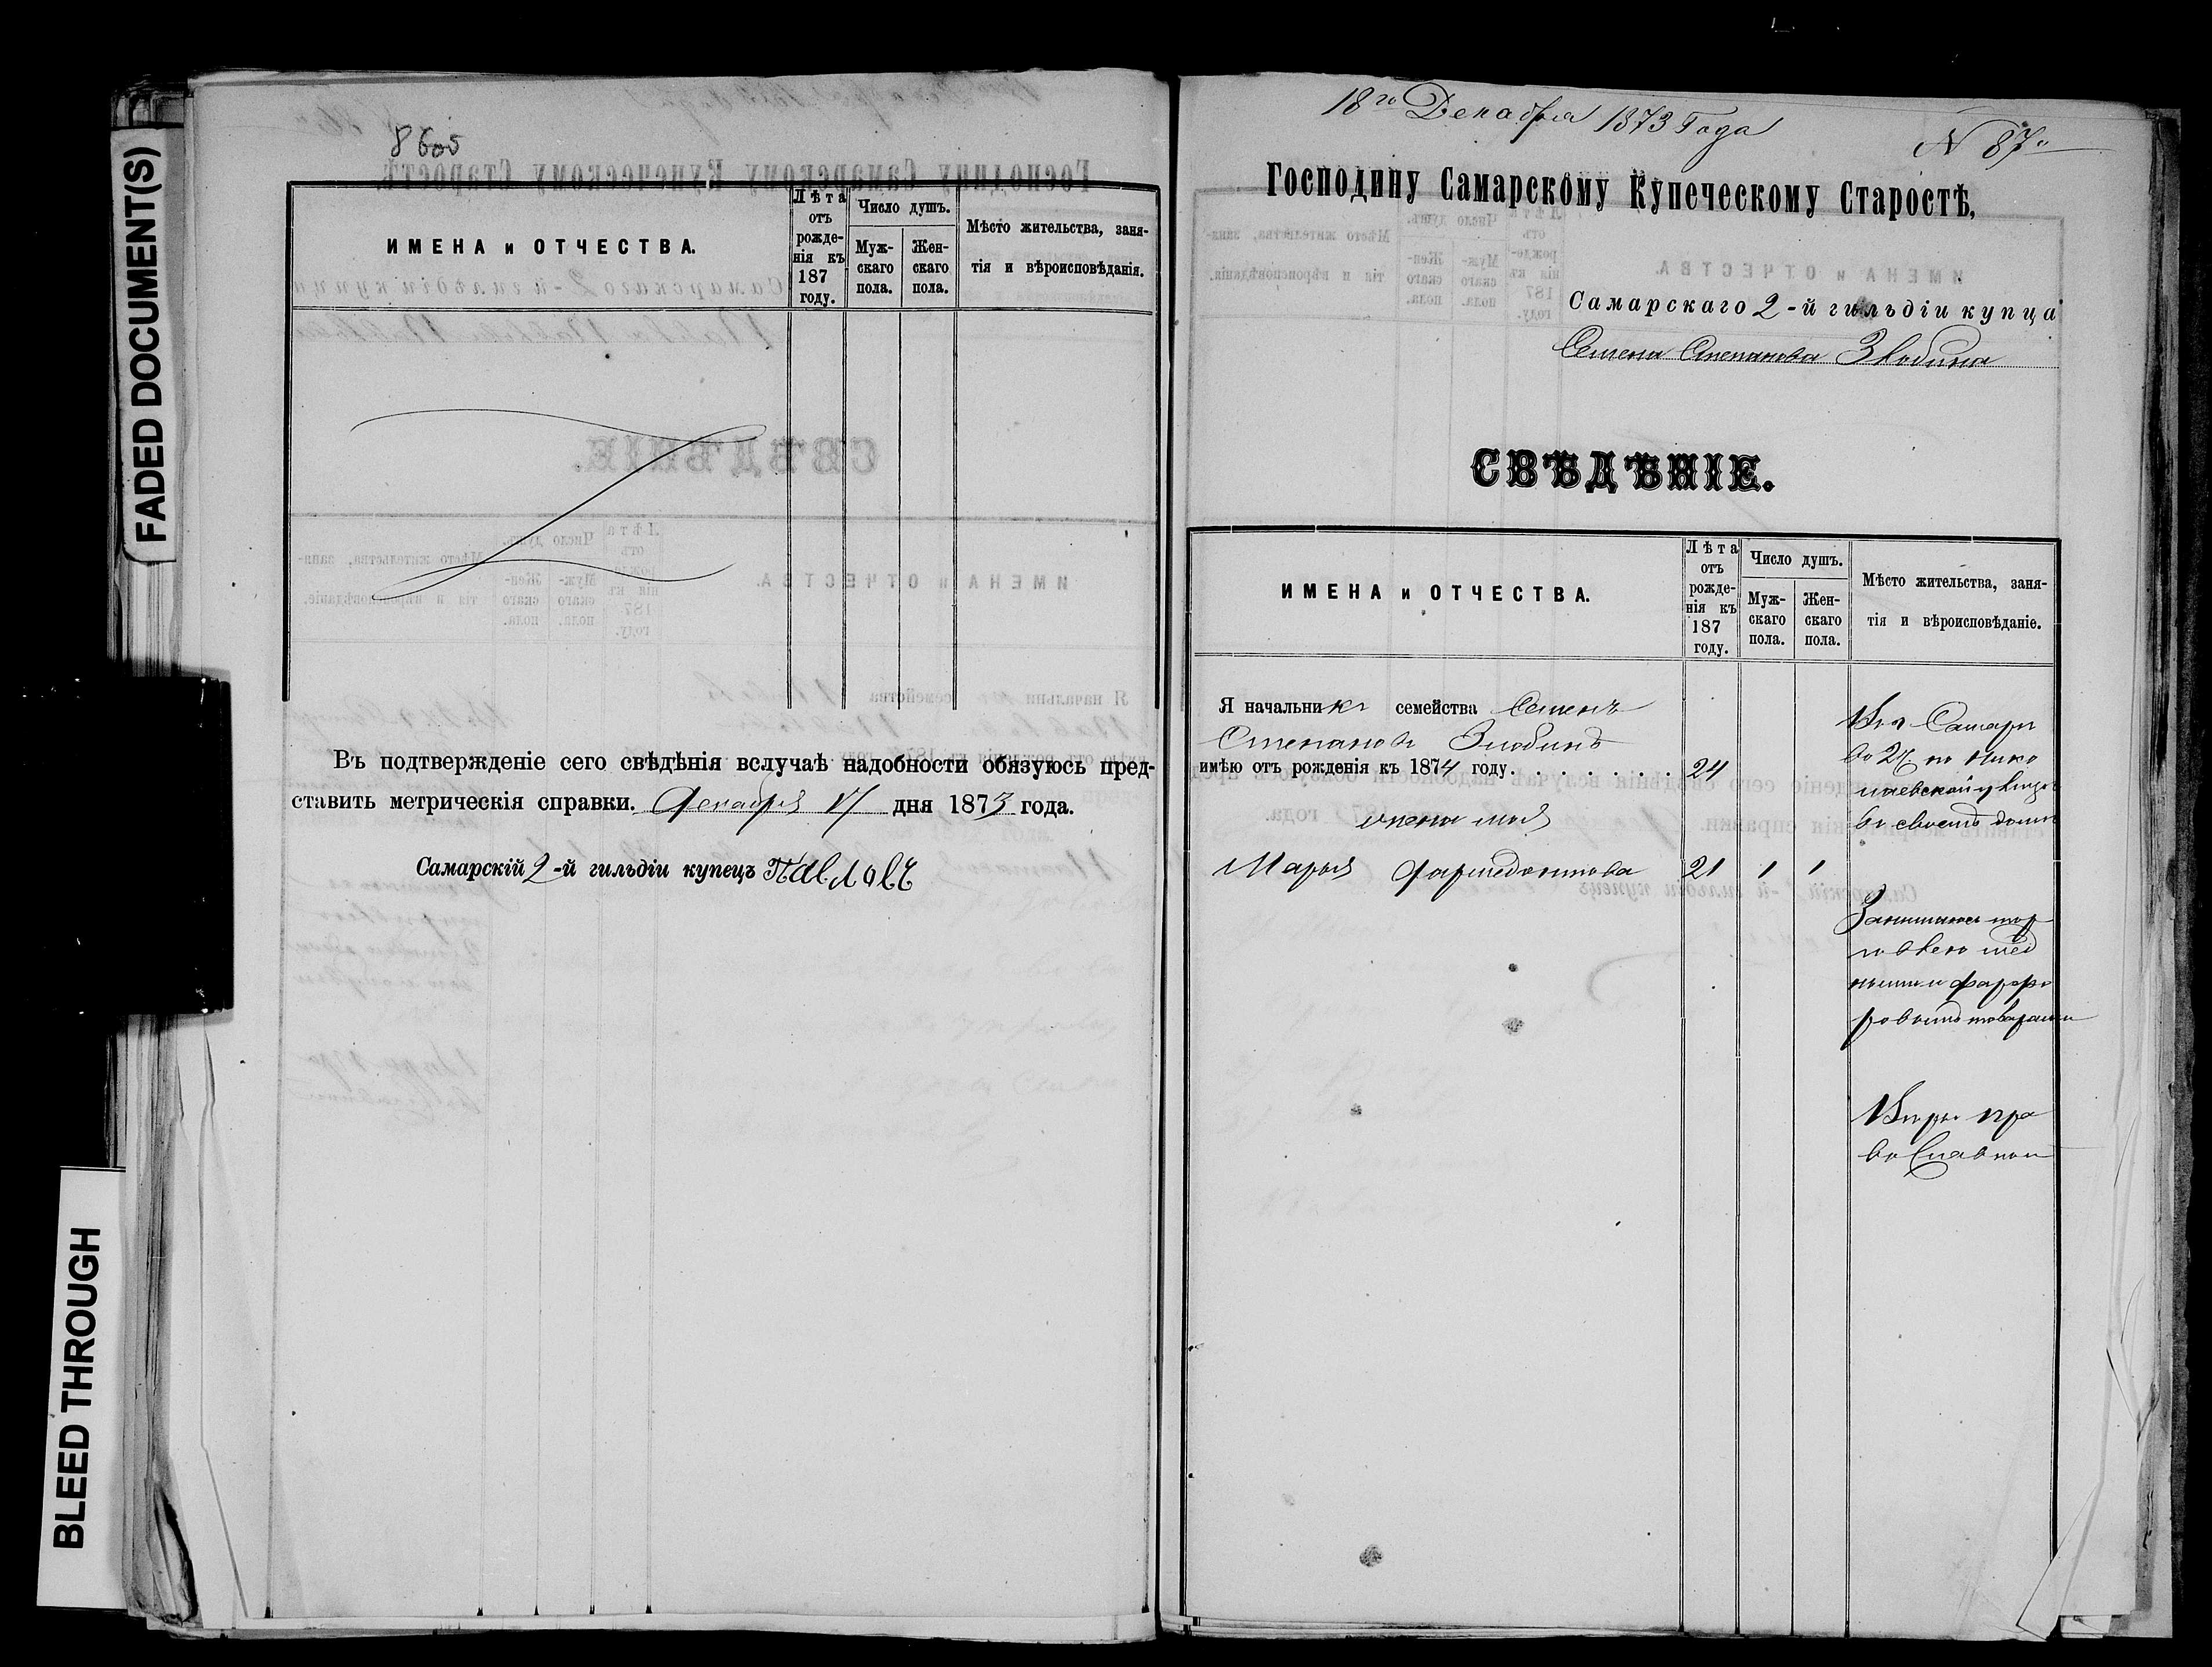 FADED DOCUMENT(S)
BLEED THROUGH
86об
ИМЕНА и ОТЧЕСТВА.
Лѣта отъ рожде-нія къ 187 году.
Число душъ.
Муж-скаго пола.
Жен-скаго пола.
Мѣсто жительства, заня-
тія и вѣроисповѣданія.
Въ подтвержденіе сего свѣдѣнія вслучаѣ надобности обязуюсь пред-
ставить метрическія справки. Декабря 17 дня 1873 года.
Самарскій 2-й гильдіи купецъ Павловъ
18го Декабря 1873 Года
N 87
Господину Самарскому Купеческому Старостѣ,
Самарскаго 2-й гильдіи купца
Семена Степанова Злобина
СВѢДѢНІЕ.
ИМЕНА и ОТЧЕСТВА.
Лѣта отъ рожде-нія къ 187 году.
Число душъ.
Муж-скаго пола.
Жен-скаго пола.
Мѣсто жительства, заня-
тія и вѣроисповѣданіе.
Я начальникъ семейства Семенъ
Степановъ Злобинъ
имѣю отъ рожденія къ 1874 году. . . . . . . . 24
жена моя
Марья 21 1 1
Въ г Самарѣ
во 2й по Нико
лаевской улицѣ
въ своемъ домѣ
Занимаюсь тор
говлею мѣд
ными и фарфо
ровымъ товарами
Вѣры пра
во Славной